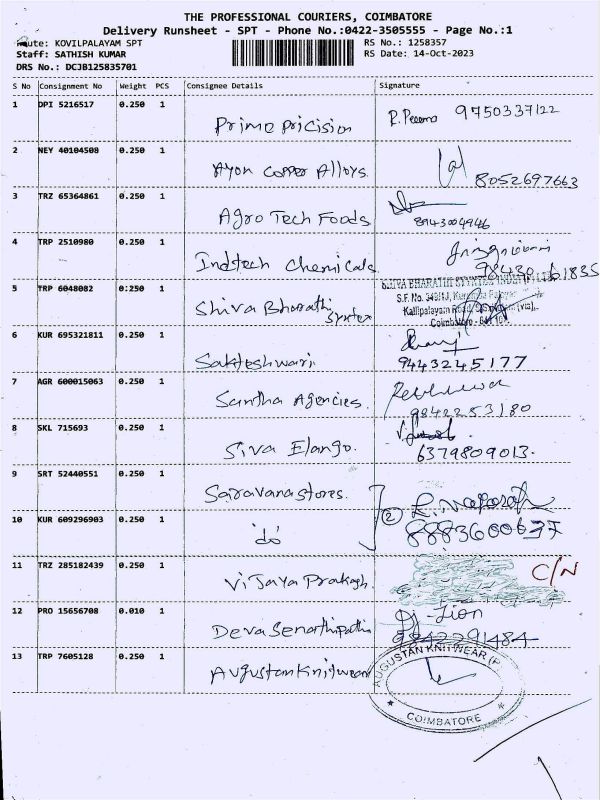 THE PROFESSIONAL COURIERS, COIMBATORE
Delivery Runsheet - SPT - Phone No.:0422-3505555 - Page No.:1
Route: KOVILPALAYAM SPT
RS No.: 1258357
Staff: SATHISH KUMAR
RS Date: 14-Oct-2023
DRS No.: DCJB125835701
S No Consignment No Weight PCS Consignee Details Signature
1 DPI 5216517 0.250 1 Prime pricision 9750337122
2 NEY 40104508 0.250 1 Ayon Copper Alloys 8052697663
3 TRZ 65364861 0.250 1 Agro Tech Foods 8943004946
4 TRP 2510980 0.250 1 Indtech Chemicals 98430 61835
5 TRP 6048082 0.250 1 Shiva Bharathi Syntex
SHIVA BHARATHI
S.F. No.
Kallipalayam Road,
Coimbatore
6 KUR 695321811 0.250 1 Sakteshwari 9443245177
7 AGR 600015063 0.250 1 Santha Agencies. 9842253180
8 SKL 715693 0.250 1 Siva Elango. 6379809013.
9 SRT 52440551 0.250 1 Saravana stores.
10 KUR 609296903 0.250 1 'do' 2
11 TRZ 285182439 0.250 1 Vijaya Prakash C/N
12 PRO 15656708 0.010 1 Deva Senathipathi 9842291484
13 TRP 7605128 0.250 1 Augustan Knitwear
AUGUSTAN KNITWEAR (P
COIMBATORE